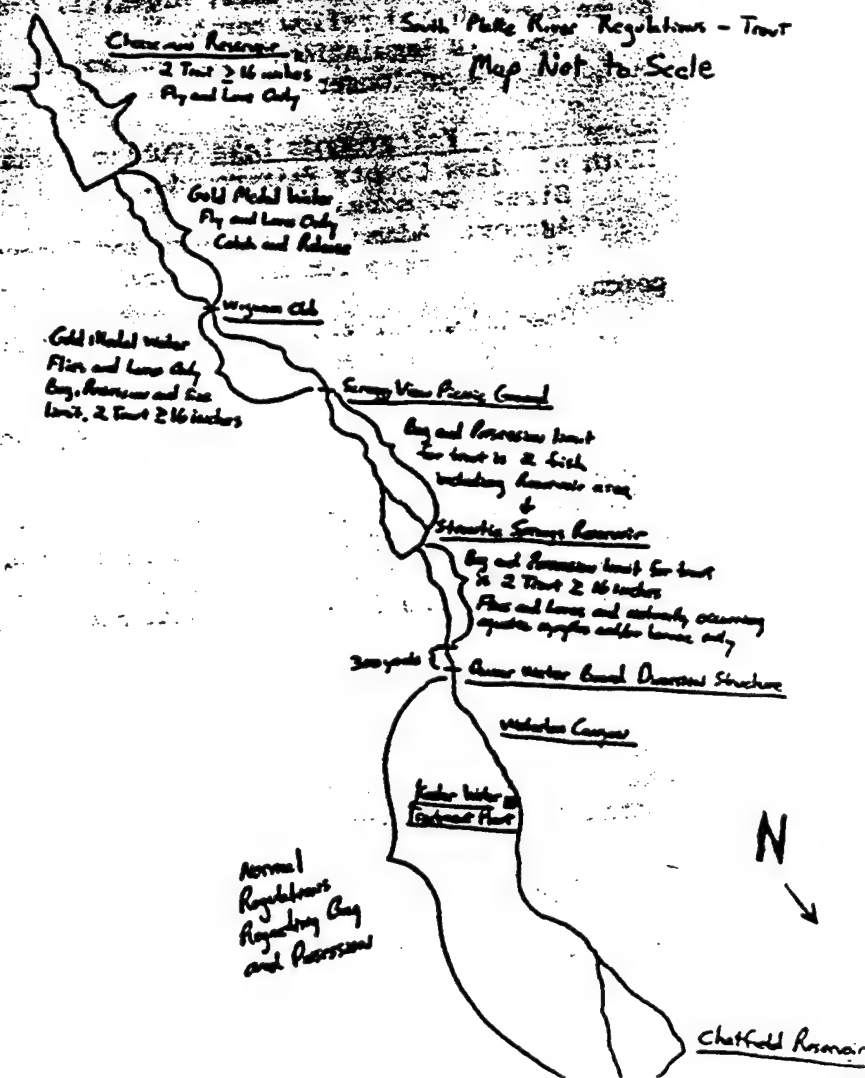 South Platte River Regulations - Trout
Map Not to Scale
Cheesman Reservoir
2 Trout ≥ 16 inches
Fly and Lure Only
Gold Medal Water
Fly and Lure Only
Catch and Release
Wigwam Club
Gold Medal Water
Flies and Lures Only
Bag, Possession and Size
limit, 2 Trout ≥ 16 inches
Scraggy View Picnic Ground
Bag and Possession limit
for trout is 2 fish
including Reservoir area
Strontia Springs Reservoir
Bag and Possession limit for trout
is 2 Trout ≥ 16 inches
Flies and Lures and naturally occurring
aquatic nymphs and/or larvae only
300 yards
Water Board Diversion Structure
Waterton Canyon
Kassler Water
Treatment Plant
N
Normal
Regulations
Regarding Bag
and Possession
Chatfield Reservoir